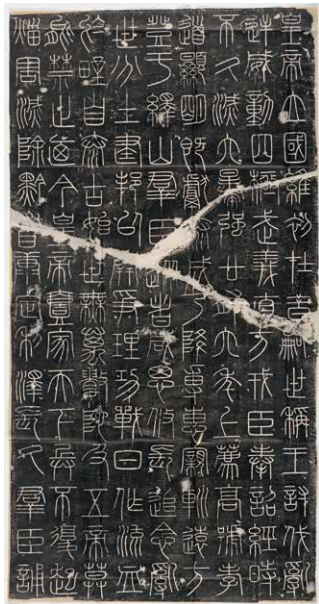 皇帝立國維初在昔嗣世稱王討伐亂
逆威動四極武義直方戎臣奉詔經時
不久滅六暴強廿有六年上薦高號孝
道顯明既獻泰成乃降專惠寴巡遠方
登于繹山羣臣從者咸思攸長追念亂
世分土建邦以開爭理功戰日作流血
於野自泰古始世無萬數陀及五帝莫
能禁止廼今皇帝壹家天下兵不復起
災害滅除黔首康定利澤長久羣臣誦